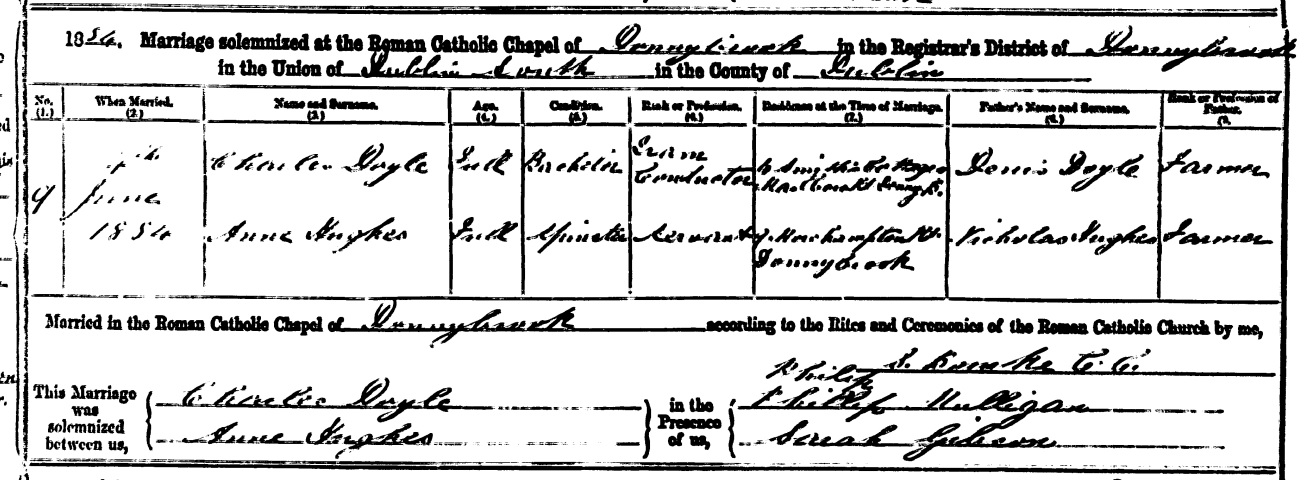 1886. Marriage solemnized at the Roman Catholic Chapel of Donnybrook in the Registrar's District of Donnybrook
in the Union of Dublin South in the County of Dublin
No. (1.) When Married. (2.) Name and Surname. (3.) Age. (4.) Condition. (5.) Rank or Profession. (6.) Residence at the Time of Marriage. (7.) Father's Name and Surname. (8.) Rank or Profession of Father. (9.)
9 June Charles Doyle Full Bachelor Tram Conductor Denis Doyle Farmer
Anne Hughes Full Spinster Servant Donnybrook Nicholas Hughes Farmer
Married in the Roman Catholic Chapel of Donnybrook according to the Rites and Ceremonies of the Roman Catholic Church by me,
C.C.
This Marriage was solemnized between us,
Charles Doyle
Anne Hughes
in the Presence of us,
Philip
Phillip Mulligan
Sarah Gibson